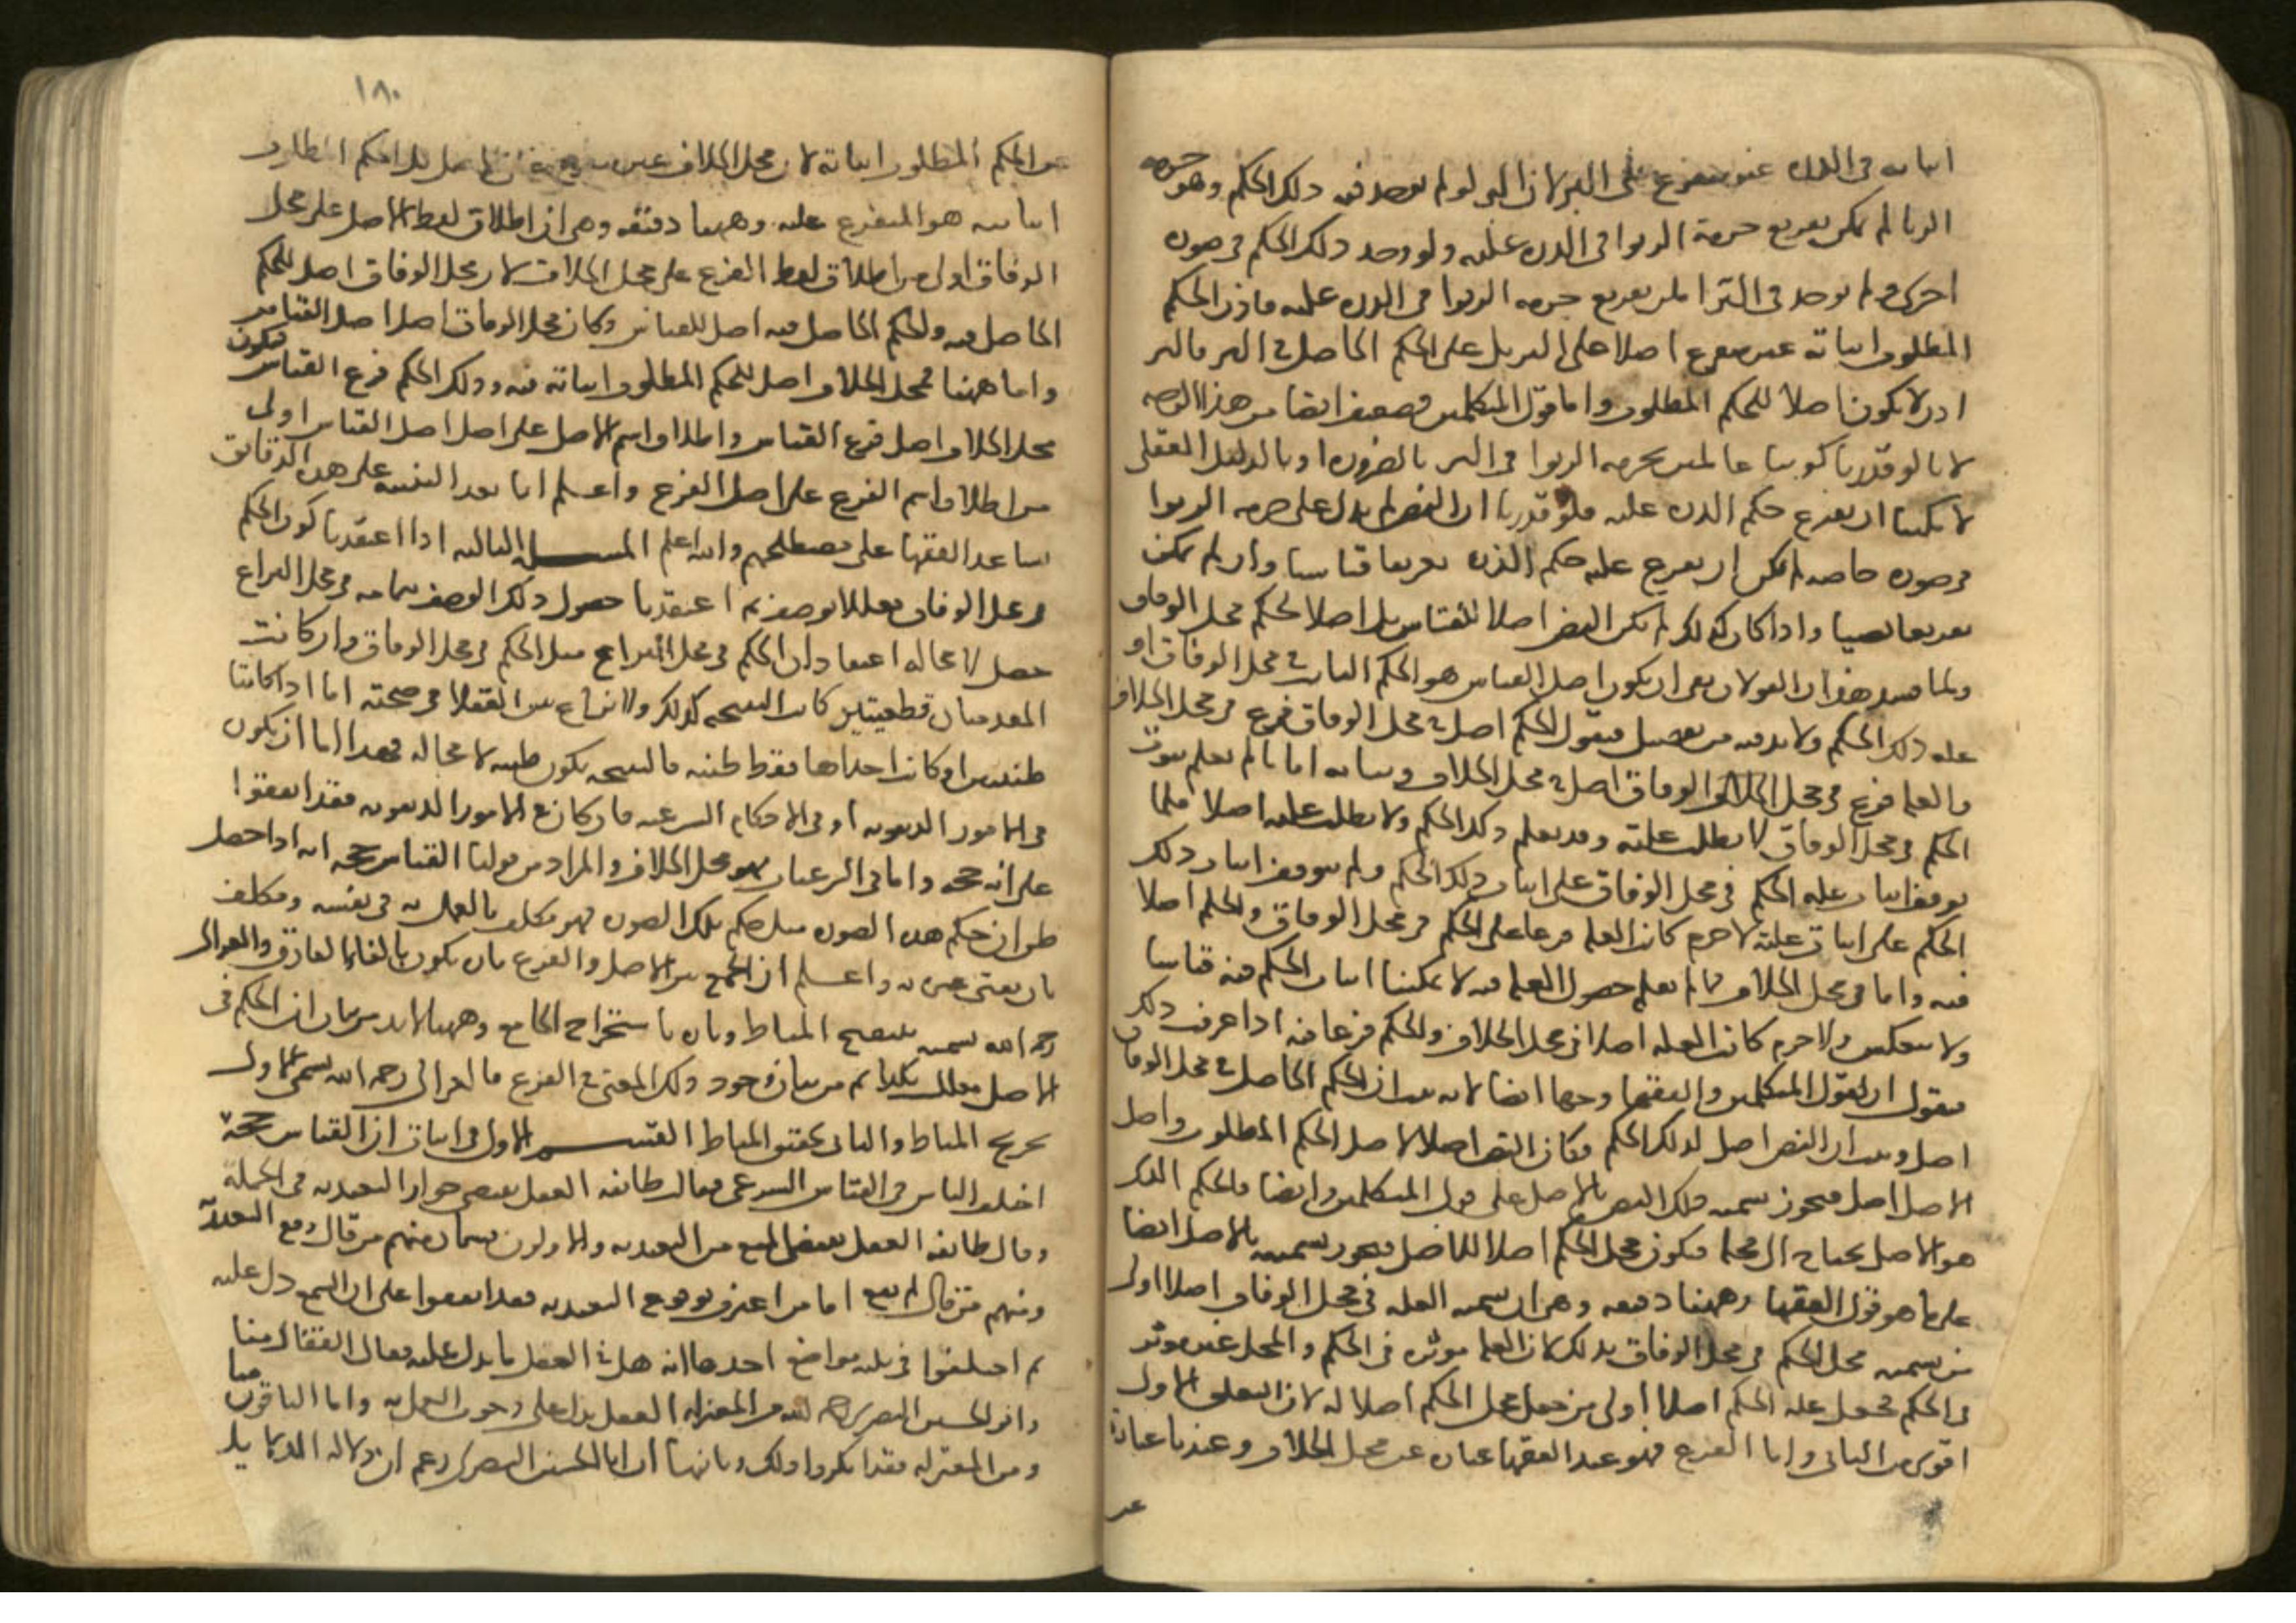 اثباته فى الذره غير متفرع على البر لان البر لو لم يوجد فيه ذلك الحكم وهو حرمه
الربا لم يمكن تفريع حرمة الربوا فى الذره عليه ولو وجد ذلك الحكم فى صوره
اخرى ولم يوجد فى البر امكن تفريع حرمه الربوا فى الذره عليه فاذن الحكم
المطلوب اثباته غير متفرع اصلا على البر بل على الحكم الحاصل فى البر فالبر
اذن لا يكون اصلا للحكم المطلوب واما قول المتكلمين فضعيف ايضا من هذا الوجه
لانا لو قدرنا كوننا عالمين بحرمه الربوا فى البر بالضروره او بالدليل العقلى
لامكننا ان نفرع حكم الذره عليه فلو قدرنا ان النص لم يدل على حرمه الربوا
فى صوره خاصه لم يمكن ان نفرع عليه حكم الذره تفريعا قياسيا وان لم يمكن
تفريعا نصيا واذا كان كذلك لم يكن النص اصلا للقياس بل اصلا لحكم محل الوفاق
ولما فسد هذان القولان بقى ان يكون اصل القياس هو الحكم الثابت فى محل الوفاق او
عله ذلك الحكم ولا بد فيه من تفصيل فنقول الحكم اصل فى محل الوفاق فرع فى محل الخلاف
والعله فرع فى محل الوفاق اصل فى محل الخلاف وبيانه اما ما لم نعلم ثبوت
الحكم فى محل الوفاق لا نطلب علته وقد نعلم ذلك الحكم ولا نطلب علته اصلا فلما
توقف اثبات عله الحكم فى محل الوفاق على اثبات ذلك الحكم ولم يتوقف اثبات ذلك
الحكم على اثبات علته لا جرم كانت العله فرعا على الحكم فى محل الوفاق والحكم اصلا
فيه واما فى محل الخلاف فما لم نعلم حصول العله فيه لا يمكننا اثبات الحكم فيه قياسا
ولا ينعكس ولا جرم كانت العله اصلا فى محل الخلاف والحكم فرعا فيه اذا عرفت ذلك
فنقول ان لقول المتكلمين والفقها وجها ايضا لانه ثبت ان الحكم الحاصل فى محل الوفاق
اصل وثبت ان النص اصل لذلك الحكم فكان النص اصلا لاصل الحكم المطلوب واصل
الاصل اصل فيجوز تسميه ذلك النص بالاصل على قول المتكلمين وايضا فالحكم الذى
هو الاصل يحتاج الى محله فيكون محل الحكم اصلا للاصل فيجوز تسميته بالاصل ايضا
على ما هو قول الفقها وههنا دقيقه وهى ان تسميه العله فى محل الوفاق اصلا اولى
من تسميه محل الحكم فى محل الوفاق بذلك لان العله موثره فى الحكم والمحل غير موثر
فى الحكم فجعل عله الحكم اصلا اولى من جعل محل الحكم اصلا له لان التعلق الاول
اقوى من الثانى واما الفرع فهو عند الفقها عباره عن محل الخلاف وعندنا عباره
عن
١٨٠
عن الحكم المطلوب اثباته لان محل الخلاف غير متفرع على الاصل بل الحكم المطلوب
اثباته هو المتفرع عليه وههنا دقيقه وهى ان اطلاق لفظ الاصل على محل
الوفاق اولى من اطلاق لفظ الفرع على محل الخلاف لان محل الوفاق اصل للحكم
الحاصل فيه والحكم الحاصل فيه اصل للقياس وكان محل الوفاق اصل اصل القياس
واما ههنا فمحل الخلاف اصل للحكم المطلوب اثباته فيه وذلك الحكم فرع القياس فيكون
محل الخلاف اصل فرع القياس واطلاق اسم الاصل على اصل اصل القياس اولى
من اطلاق اسم الفرع على اصل الفرع واعلم انا بعد التنبيه على هذه الدقائق
نساعد الفقها على مصطلحهم والله اعلم المسله الثالثه اذا اعتقدنا كون الحكم
فى محل الوفاق معللا بوصف ثم اعتقدنا حصول ذلك الوصف بتمامه فى محل النزاع
حصل لا محاله اعتقاد ان الحكم فى محل النزاع مثل الحكم فى محل الوفاق وان كانت
المقدمتان قطعيتين كانت النتيجه كذلك ولا نزاع بين العقلا فى صحته اما اذا كانتا
ظنيتين او كانت احداهما فقط ظنيه فالنتيجه تكون ظنيه لا محاله فهذا اما ان يكون
فى الامور الدنيويه او فى الاحكام الشرعيه فان كان فى الامور الدنيويه فقد اتفقوا
على انه حجه واما فى الشرعيات فهو محل الخلاف والمراد من قولنا القياس حجه انه اذا حصل
ظن ان حكم هذه الصوره مثل حكم تلك الصوره فهو مكلف بالعمل به فى نفسه ومكلف
بان يفتى غيره به واعلم ان الجمع بين الاصل والفرع بان يكون بالغا الفارق والغزالى
رحمه الله يسميه بتنقيح المناط وبان باستخراج الجامع وههنا لا بد من بيان ان الحكم فى
الاصل معلل بكذا ثم من بيان وجود ذلك المعنى فى الفرع فالغزالى رحمه الله يسمى الاول
تخريج المناط والثانى تحقيق المناط القسم الاول فى اثبات ان القياس حجه
اختلف الناس فى القياس الشرعى فقال طائفه العقل يقتضى جواز التعبد به فى الجمله
وقال طائفه العقل يقتضى المنع من التعبد به والاولون قسمان منهم من قال وقع التعبد به
ومنهم من قال لم يقع اما من اعترف بوقوع التعبد به فقد اتفقوا على ان السمع دل عليه
ثم اختلفوا فى ثلثه مواضع احدها انه هل فى العقل ما يدل عليه فقال القفال منا
وابو الحسين البصرى رحمه الله من المعتزله العقل يدل على وجوب العمل به واما الباقون منا
ومن المعتزله فقد انكروا ذلك وثانيها ان ابا الحسين البصرى زعم ان دلاله الدلايل